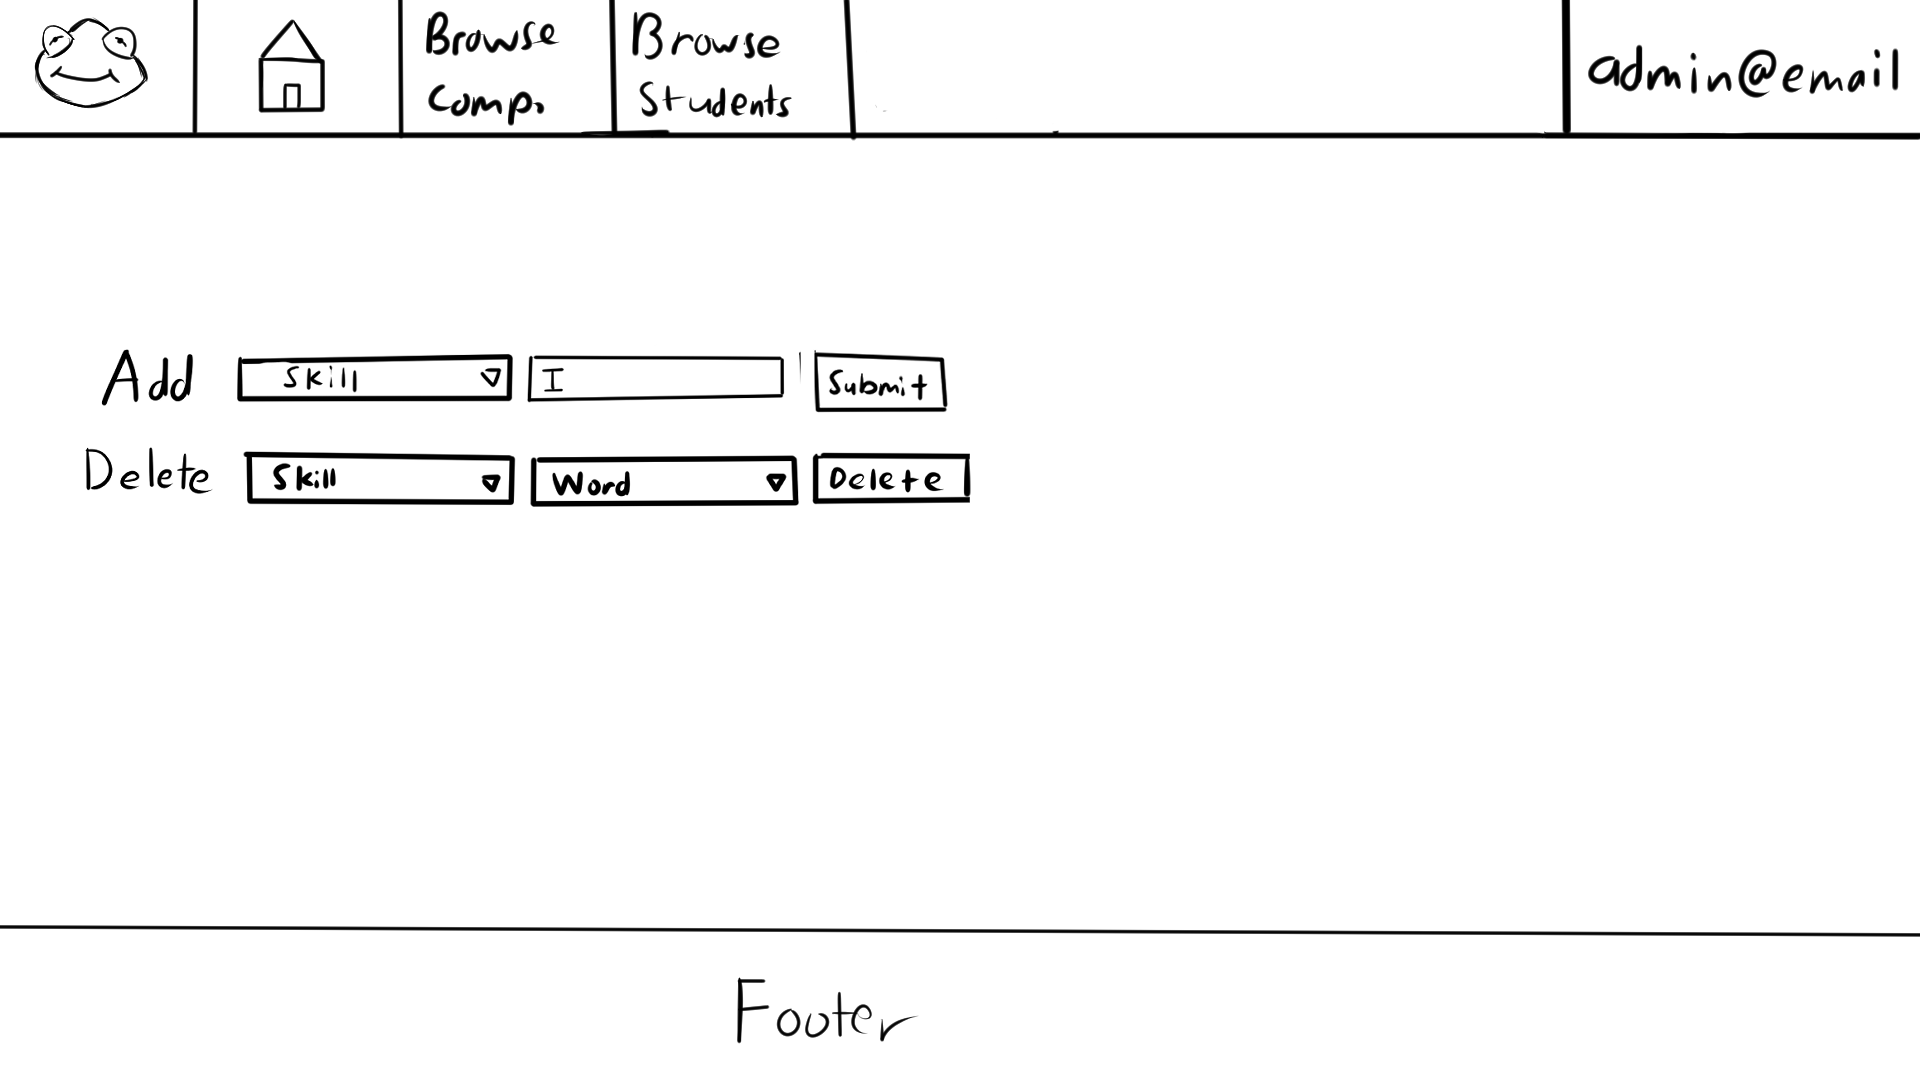 Browse
Comp.
Browse
Students
admin@email
Add
Skill
I
Submit
Delete
Skill
Word
Delete
Footer